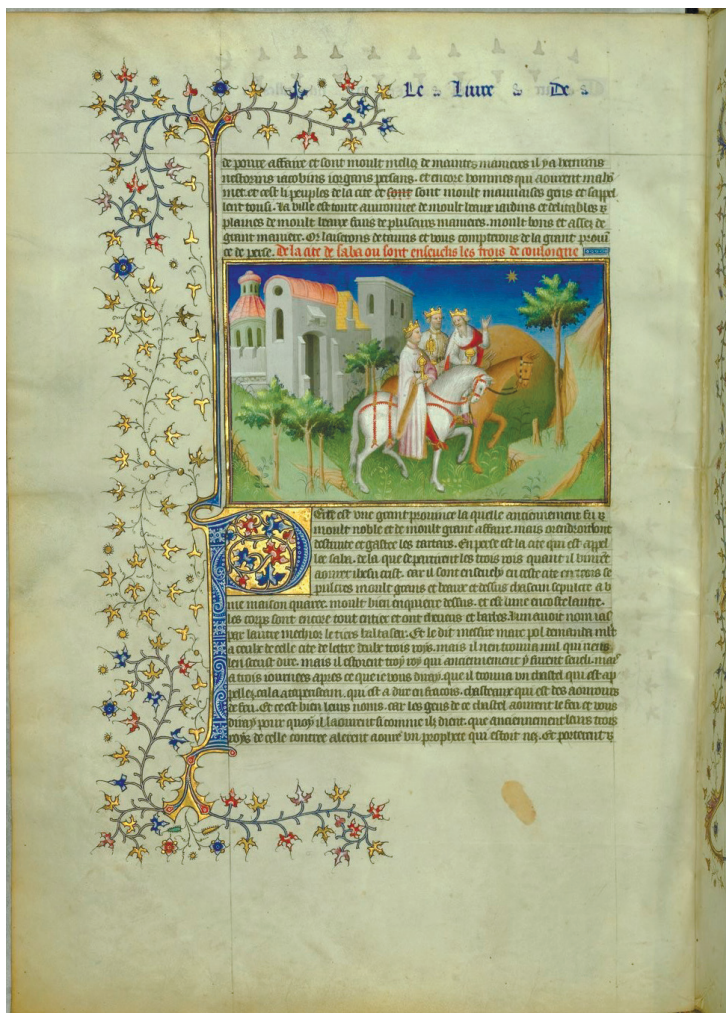 Le Liure De
de poure affaire et sont moult mellez de maintes manieres il y a hermins
nestorins iacobins iorgans persans. et encore hommes qui aourent mahō
met. et cest li peuples de la cite et sont moult mauuaises gens et sappel
lent tousi. La ville est toute auironnee de moult beaux iardins et delitables
plaines de moult beaux fruis de plusieurs manieres. moult bons et assez de
grant maniere. Or lairons de tauris et vous compterons de la grant prouī
ce de perse. De la cite de saba ou sont enseuelis les trois de couloigne
Perse est vne grant prouince la quelle anciennement fu
moult noble et de moult grant affaire. mais orendroit lont
destruite et gastee les tartars. En perse est la cite qui est appel
lee saba. de la que se partirent les trois rois quant il vindrēt
aourer ihesu crist. car il sont enseuely en ceste cite en trois se
pultures moult grans et beaux et dessus chascun sepulcre a v
ne maison quaree. moult bien enqueuree dessus. et est lune encoste lautre.
les corps sont encore tout entier et ont cheueus et barbes. lun auoit nom ias
par lautre melchior le tiers baltasar. Et le dit messire marc pol demanda mlt
a ceulx de celle cite de lestre de ulx trois roys. mais il nen trouua nul qui riens
len sceust dire. mais il estoient troy roy qui anciennement y furent seueli. mais
a trois iournees apres ce que ie vous diray. que il trouua vn chastel qui est ap
pellez cala ataperistam. qui est a dire en francois. chasteaux qui est des aourours
de feu. Et ce est bien leurs noms. car les gens de ce chastel aourent le feu et vous
diray pour quoy il laourent si comme ilz dient. que anciennement leurs trois
roys de celle contree alerent aourer vn prophete qui estoit nez. et porterent